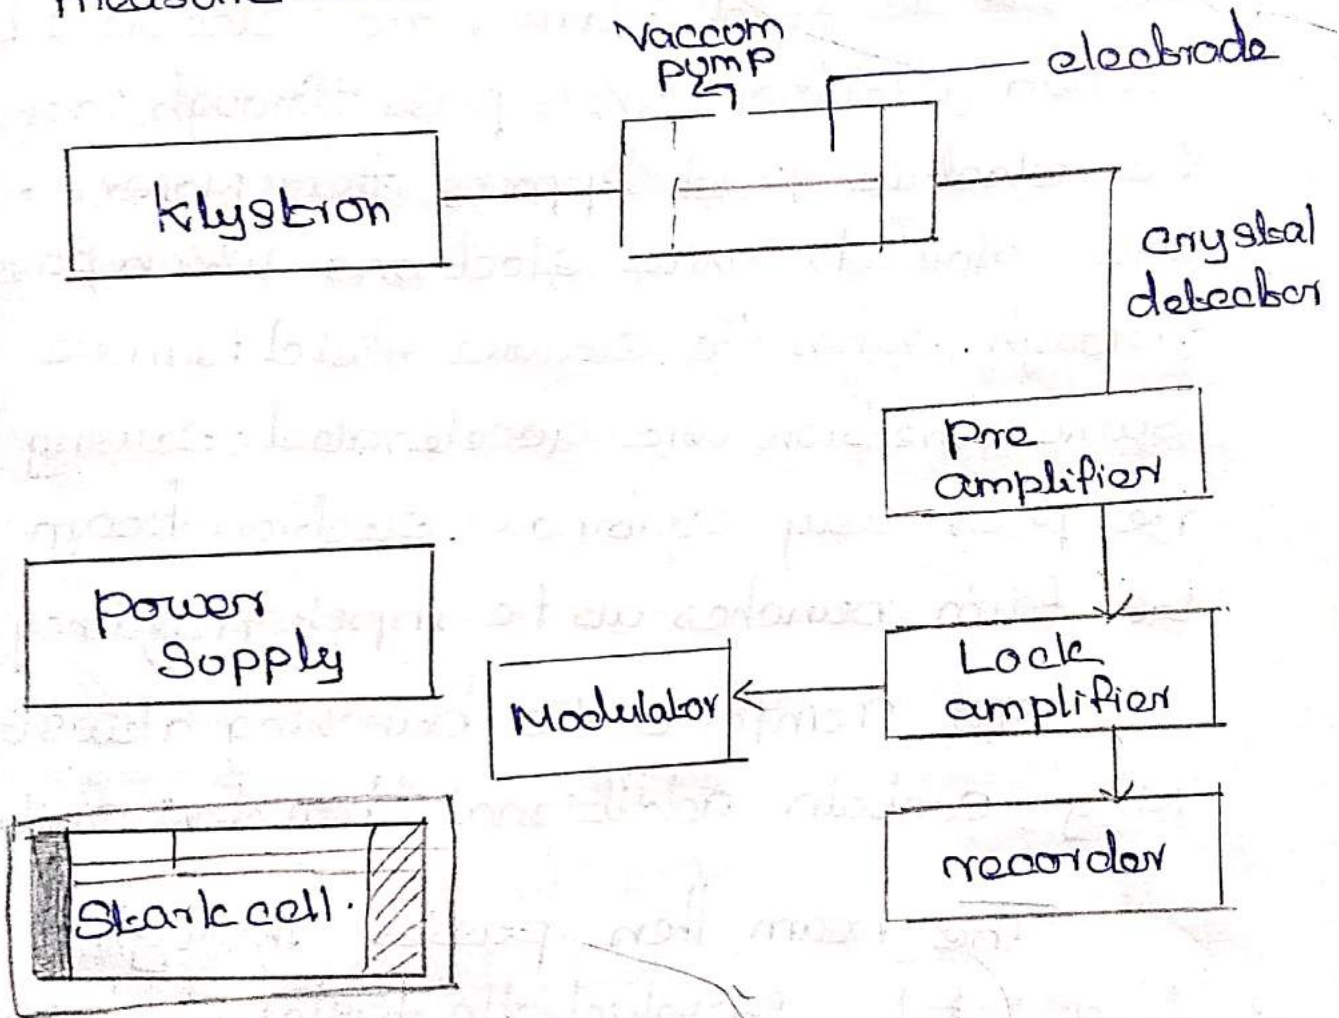 Vaccom
pump
electrode
Klystron
crystal
detector
Pre
amplifier
power
Supply
Lock
amplifier
Modulator
recorder
Stark cell.